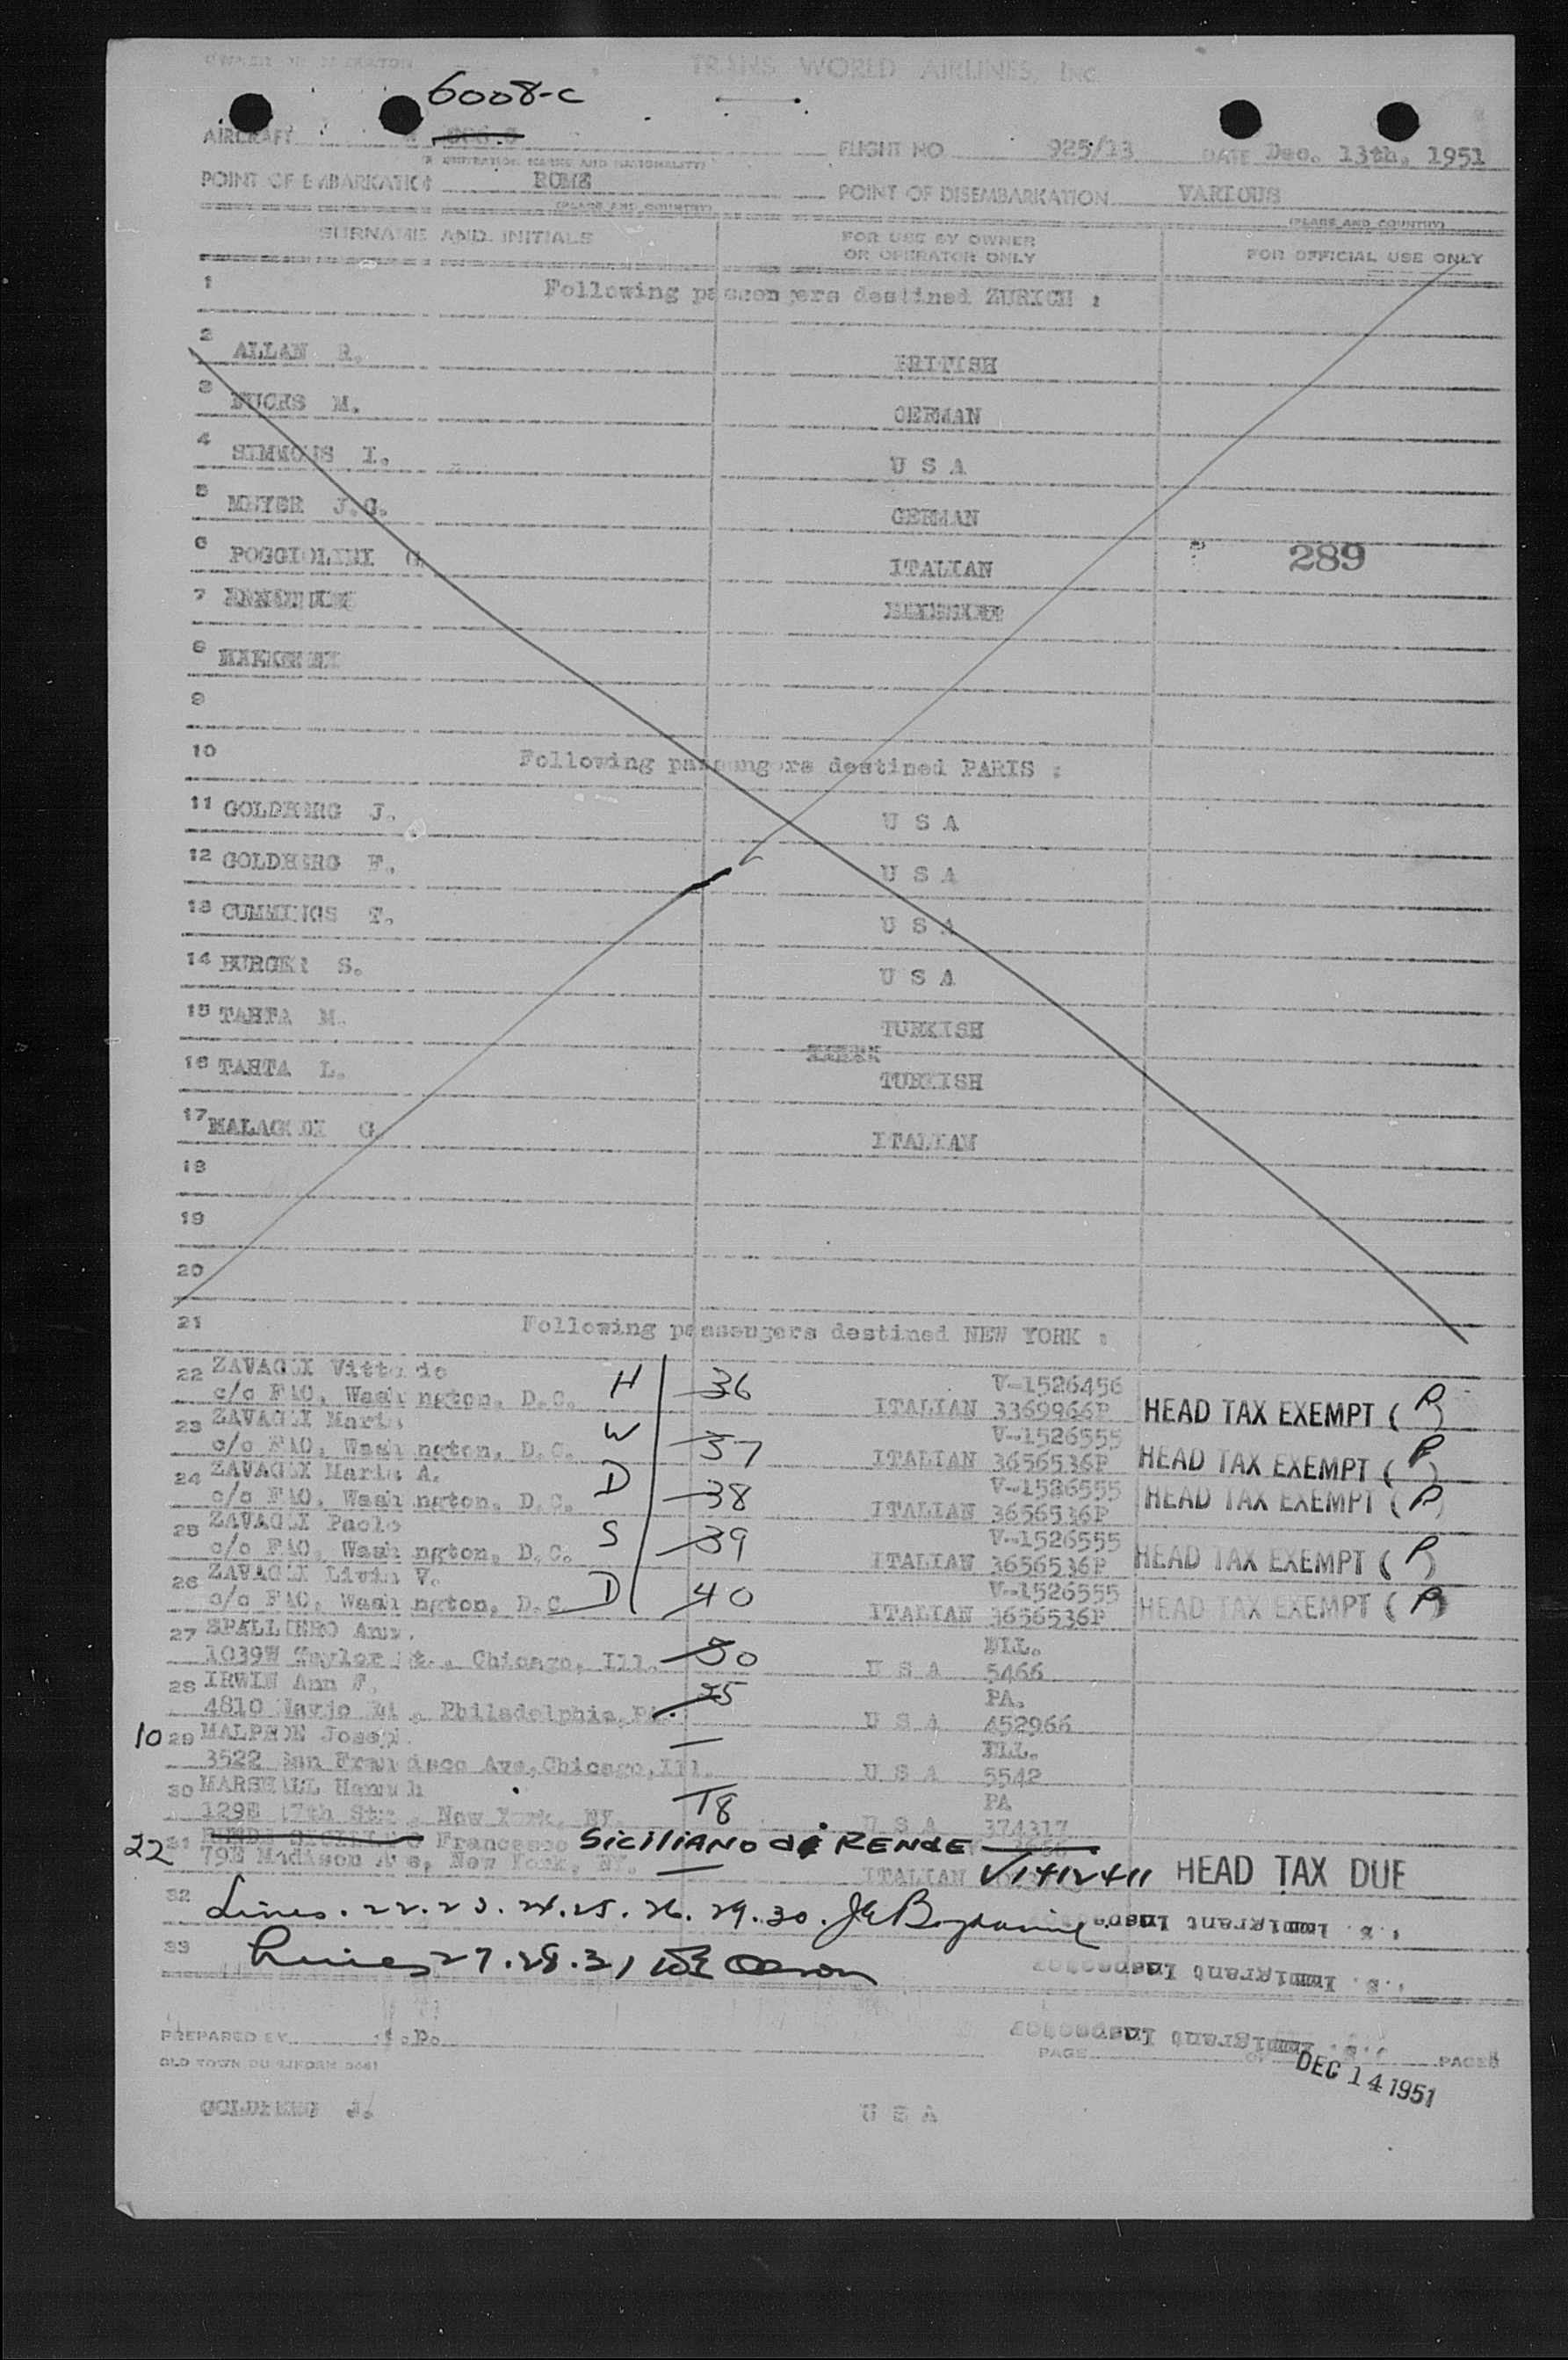 OWNER OR OPERATOR TRANS WORLD AIRLINES, Inc
6008-C
AIRCRAFT FLIGHT NO 925/13 DATE Dec. 13th, 1951
(REGISTRATION MARKS AND NATIONALITY)
POINT OF EMBARKATION ROME POINT OF DISEMBARKATION VARIOUS
(PLACE AND COUNTRY) (PLACE AND COUNTRY)
SURNAME AND INITIALS FOR USE BY OWNER OR OPERATOR ONLY FOR OFFICIAL USE ONLY
1 Following passengers destined ZURICH :
2 ALLAN R. BRITISH
3 FUCHS M. GERMAN
4 SIMMONS I. U S A
5 MEYER J.G. GERMAN
6 POGGIOLINI G ITALIAN 289
7
8
9
10 Following passengers destined PARIS :
11 GOLDBERG J. U S A
12 GOLDBERG F. U S A
13 CUMMINGS T. U S A
14 BURGER S. U S A
15 TAHTA M. TURKISH
16 TAHTA L. TURKISH
17 MALAGODI G. ITALIAN
18
19
20
21 Following passengers destined NEW YORK :
22 ZAVAGLI Vittorio H 36 V-1526456
c/o FAO, Washington, D.C. ITALIAN 3369966P HEAD TAX EXEMPT (P)
23 ZAVAGLI Maria W 37 V-1526555
c/o FAO, Washington, D.C. ITALIAN 3656536P HEAD TAX EXEMPT (P)
24 ZAVAGLI Maria A. D 38 V-1526555
c/o FAO, Washington, D.C. ITALIAN 3656536P HEAD TAX EXEMPT (P)
25 ZAVAGLI Paolo S 39 V-1526555
c/o FAO, Washington, D.C. ITALIAN 3656536P HEAD TAX EXEMPT (P)
26 ZAVAGLI Livia V. D 40 V-1526555
c/o FAO, Washington, D.C. ITALIAN 3656536P HEAD TAX EXEMPT (P)
27 SPALLINRO Ann. 30 ILL.
1039W Taylor St., Chicago, Ill. U S A 5466
28 IRWIN Ann F. 25 PA.
4810 Navjo St., Philadelphia, Pa. U S A 452966
10 29 MALPEDE Joseph. ILL.
3522 San Francisco Ave, Chicago, Ill. U S A 5542
30 MARSHALL Hannah 18 PA
129E 17th Str., New York, NY. U S A 374317
22 31 Francesco SICILIANO di RENDE
79E Madison Ave, New York, NY. ITALIAN V1412411 HEAD TAX DUE
32 Lines. 22. 23. 24. 25. 26. 29. 30.
U.S. Immigrant Inspector
33 Lines 27. 28. 31 Olson
U.S. Immigrant Inspector
U.S. Immigrant Inspector
PREPARED BY PAGE OF PAGES
OLD TOWN DUPLIFORM
DEC 14 1951
GOLDBERG J. U S A